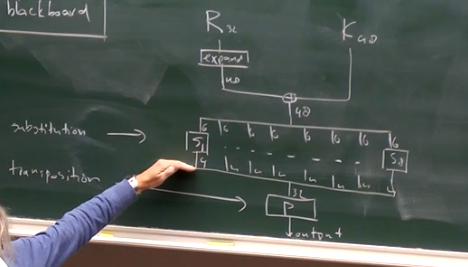 blackboard
R32 K48
expand
48
48
substitution
6 6 6 6 6 6 6 6
S1 S8
4 4 4 4 4 4 4 4
transposition
32
P
output